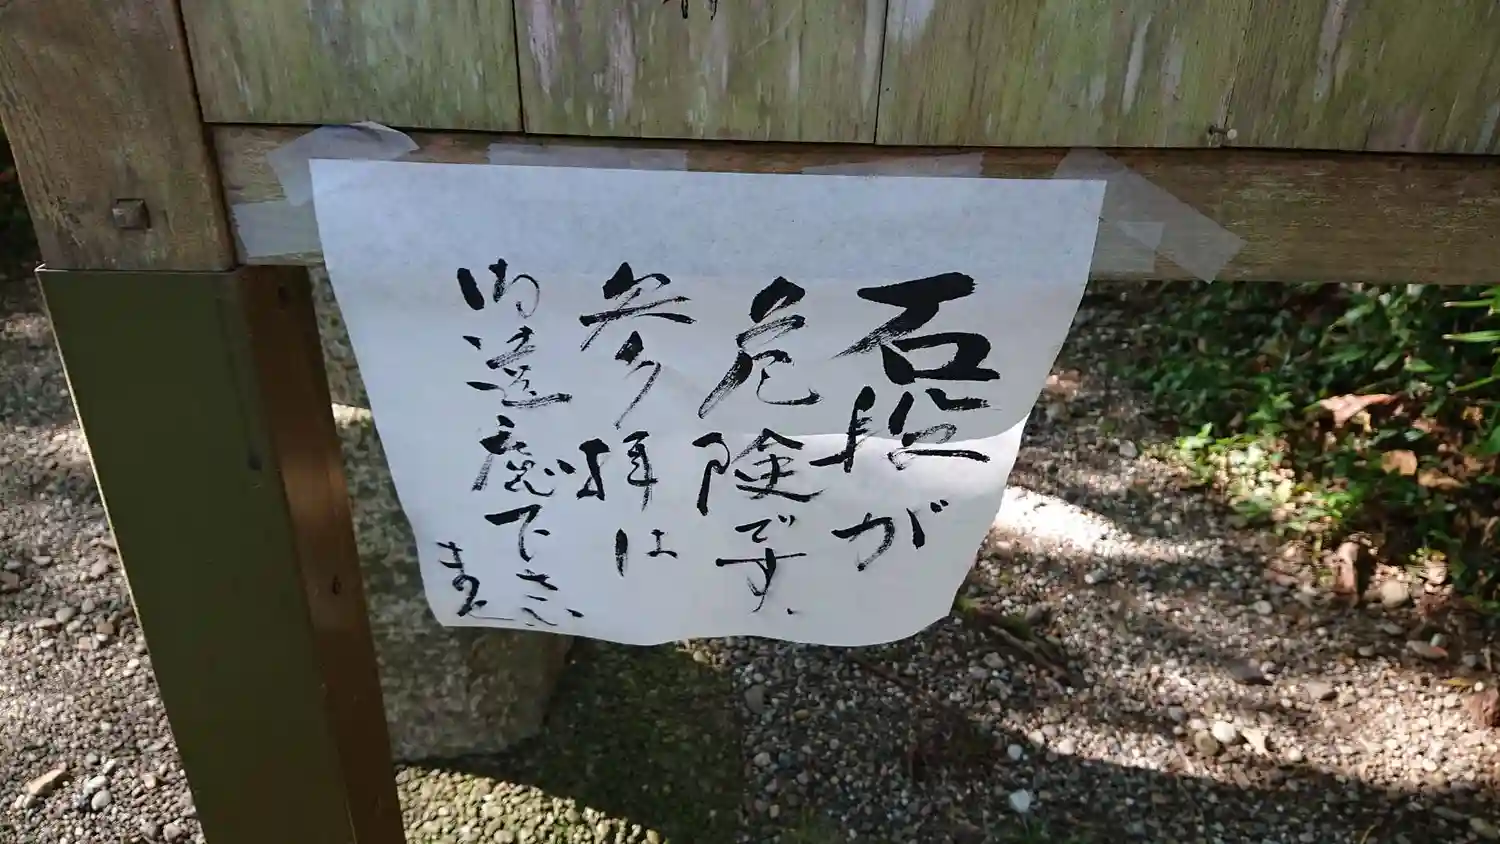 石段が
危険です、
参拝は
御遠慮下さい
ませ